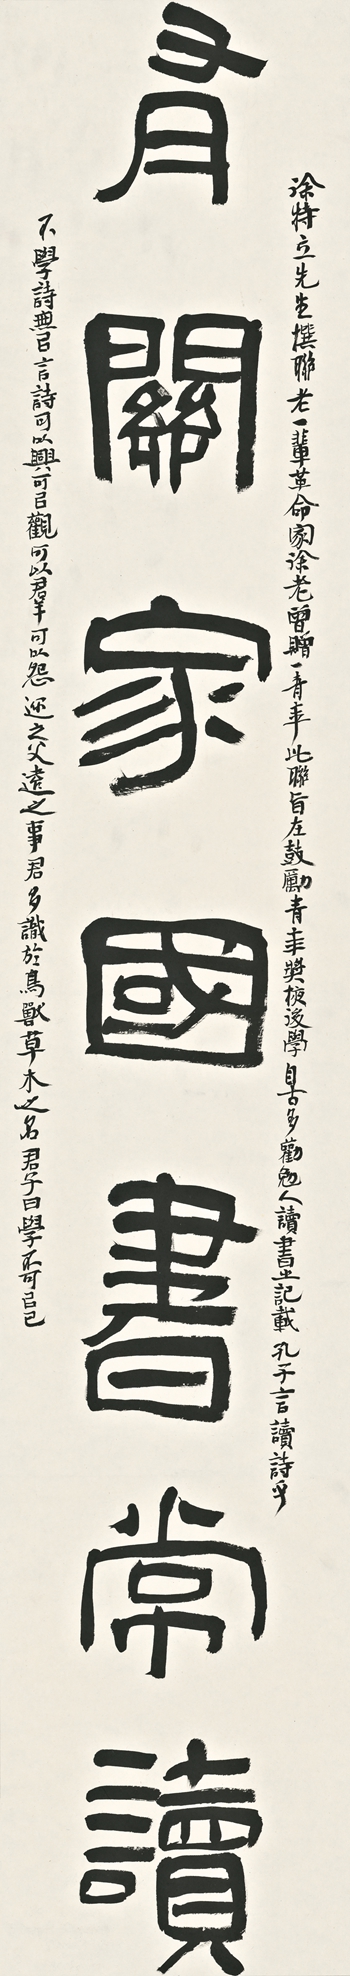 徐特立先生撰聯老一輩革命家徐老曾贈一青年此聯旨在鼓勵青年獎掖後學自古多勸勉人讀書之記載孔子言讀詩乎
有關家國書常讀
不學詩無㠯言詩可以興可㠯觀可以群可以怨迩之父遠之事君多識於鳥獸草木之名君子曰學不可㠯已